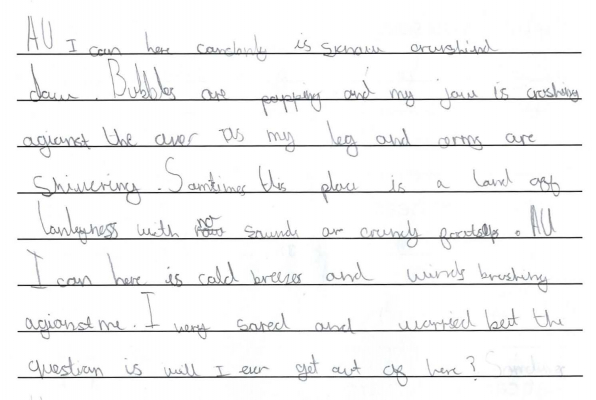 All I can here constanly is snow crushind
down. Bubbles are popping and my jaw is croshing
agianst the other as my leg and arms are
Shivering. Somtimes this place is a land off
lonlyness with no sounds or crunchy footsteps. All
I can here is cold breezes and winds brushing
agianst me. I very scared and worried but the
question is will I ever get out of here?